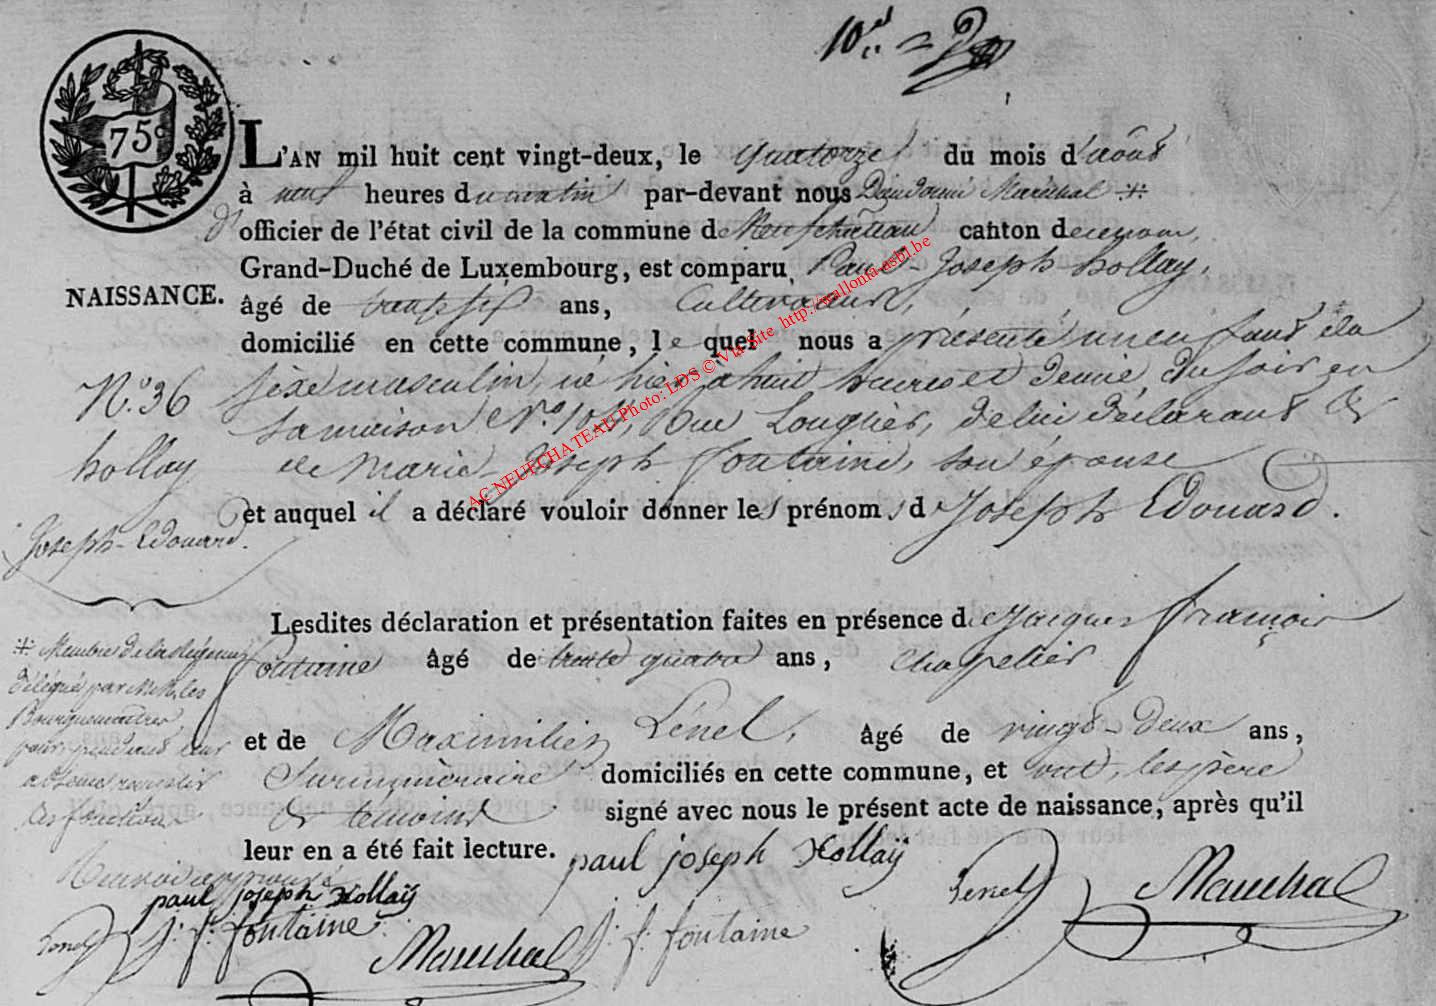 10re = 2
75c
L'AN mil huit cent vingt-deux, le quatorze du mois d'août
à neuf heures du matin par-devant nous Dieudonné Maréchal *
officier de l'état civil de la commune de Neufchâteau canton de
Grand-Duché de Luxembourg, est comparu Paul-Joseph hollay,
NAISSANCE.
âgé de ans, Cultivateur,
domicilié en cette commune, le quel nous a présenté un enfant du
N.° 36
sexe masculin, né hier à huit heures et demie du soir en
sa maison N.° Rue Longues, de lui déclarant &
hollay
de Marie Joseph fontaine, son épouse
et auquel il a déclaré vouloir donner les prénoms d Joseph Edouard.
Joseph-Edouard.
Lesdites déclaration et présentation faites en présence de Jacques françois
* Membre de la régence
fontaine âgé de trente quatre ans, Chapelier
délégué par MM. les
Bourguemaitres
et de Maximilien Lenel, âgé de vingt-deux ans,
pour pendant leur
absence remplir
Surnuméraire domiciliés en cette commune, et ont, les père
les fonctions
& temoins signé avec nous le présent acte de naissance, après qu'il
leur en a été fait lecture.
paul joseph Hollaÿ
Lenel
Marechal
Renvoi approuvé
paul joseph Hollaÿ
Lenel
j. f. fontaine
Marechal
j. f. fontaine
AC NEUFCHATEAU Photo: LDS © Via Site http://wallonia-asbl.be